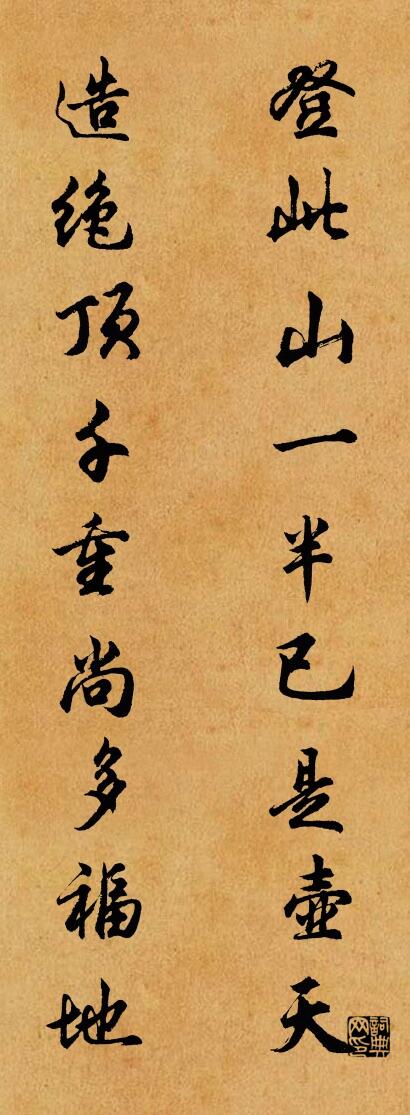 登此山一半已是壺天
造絶顶千重尚多福地
詞典网印